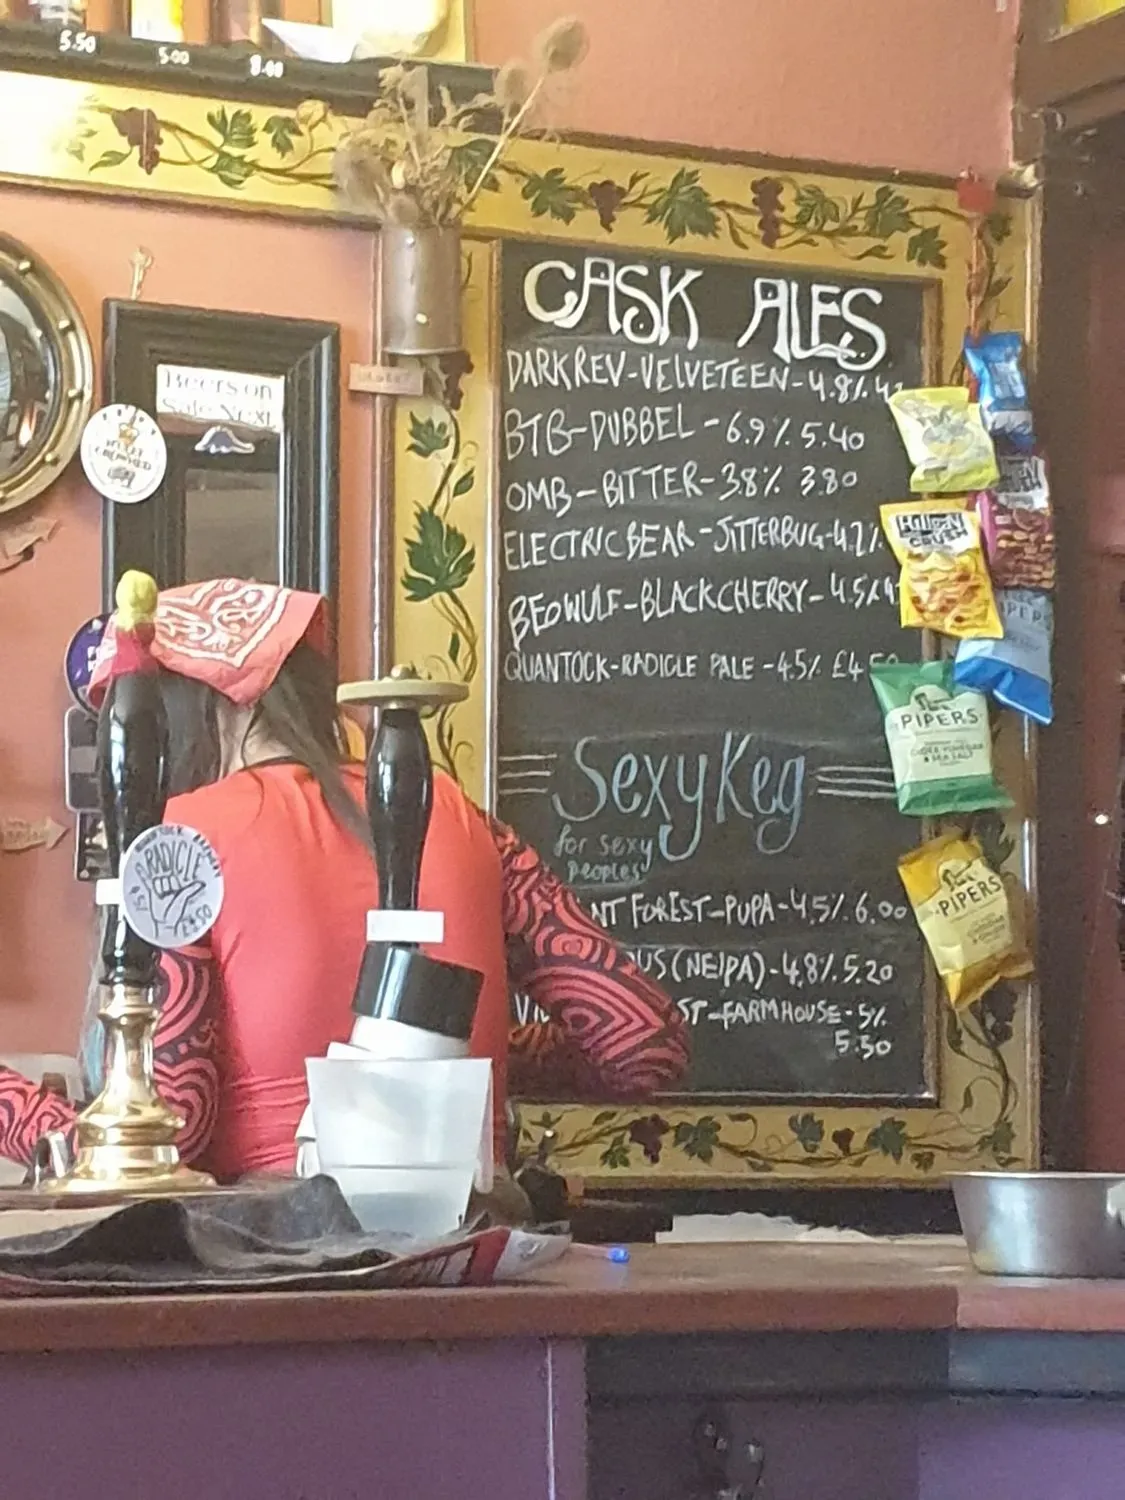 5.50
5.00
8.40
CASK ALES
DARK REV-VELVETEEN-4.8%
BTB-DUBBEL-6.9% 5.40
OMB-BITTER-3.8% 3.80
ELECTRIC BEAR-JITTERBUG-4.2%
BEOWULF-BLACKCHERRY-4.5%
QUANTOCK-RADICLE PALE-4.5% £4.50
Sexy Keg
for sexy
peoples
NT FOREST-PUPA-4.5% 6.00
US(NEIPA)-4.8% 5.20
ST-FARMHOUSE-5%
5.50
Beers on
Sale Next
RADICLE
PIPERS
PIPERS
PIPERS